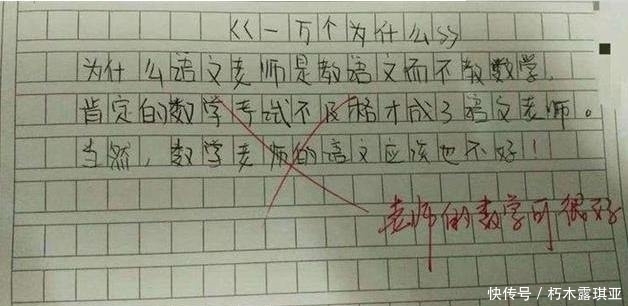 《一万个为什么》
为什么语文老师是教语文而不教数学,
肯定的数学考试不及格才成了语文老师。
当然,数学老师的语文应该也不好!
老师的数学可很好
快传号/朽木露琪亚